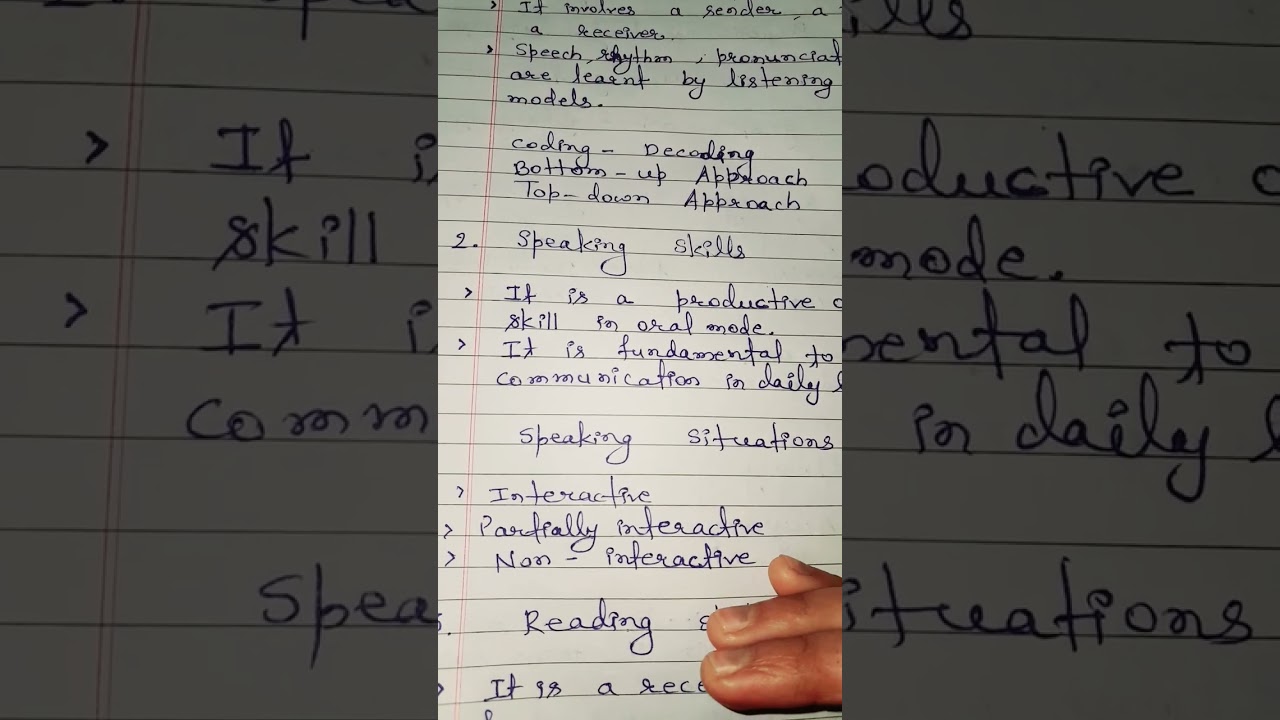 > It involves a sender, a
a receiver.
> Speech, rhythm, pronunciat
are learnt by listening
models.
coding - Decoding
Bottom-up Approach
Top-down Approach
2. Speaking skills
> It is a productive o
skill in oral mode.
> It is fundamental to
communication in daily l
Speaking situations
> Interactive
> Partially interactive
> Non-interactive
Reading
> It is a rece